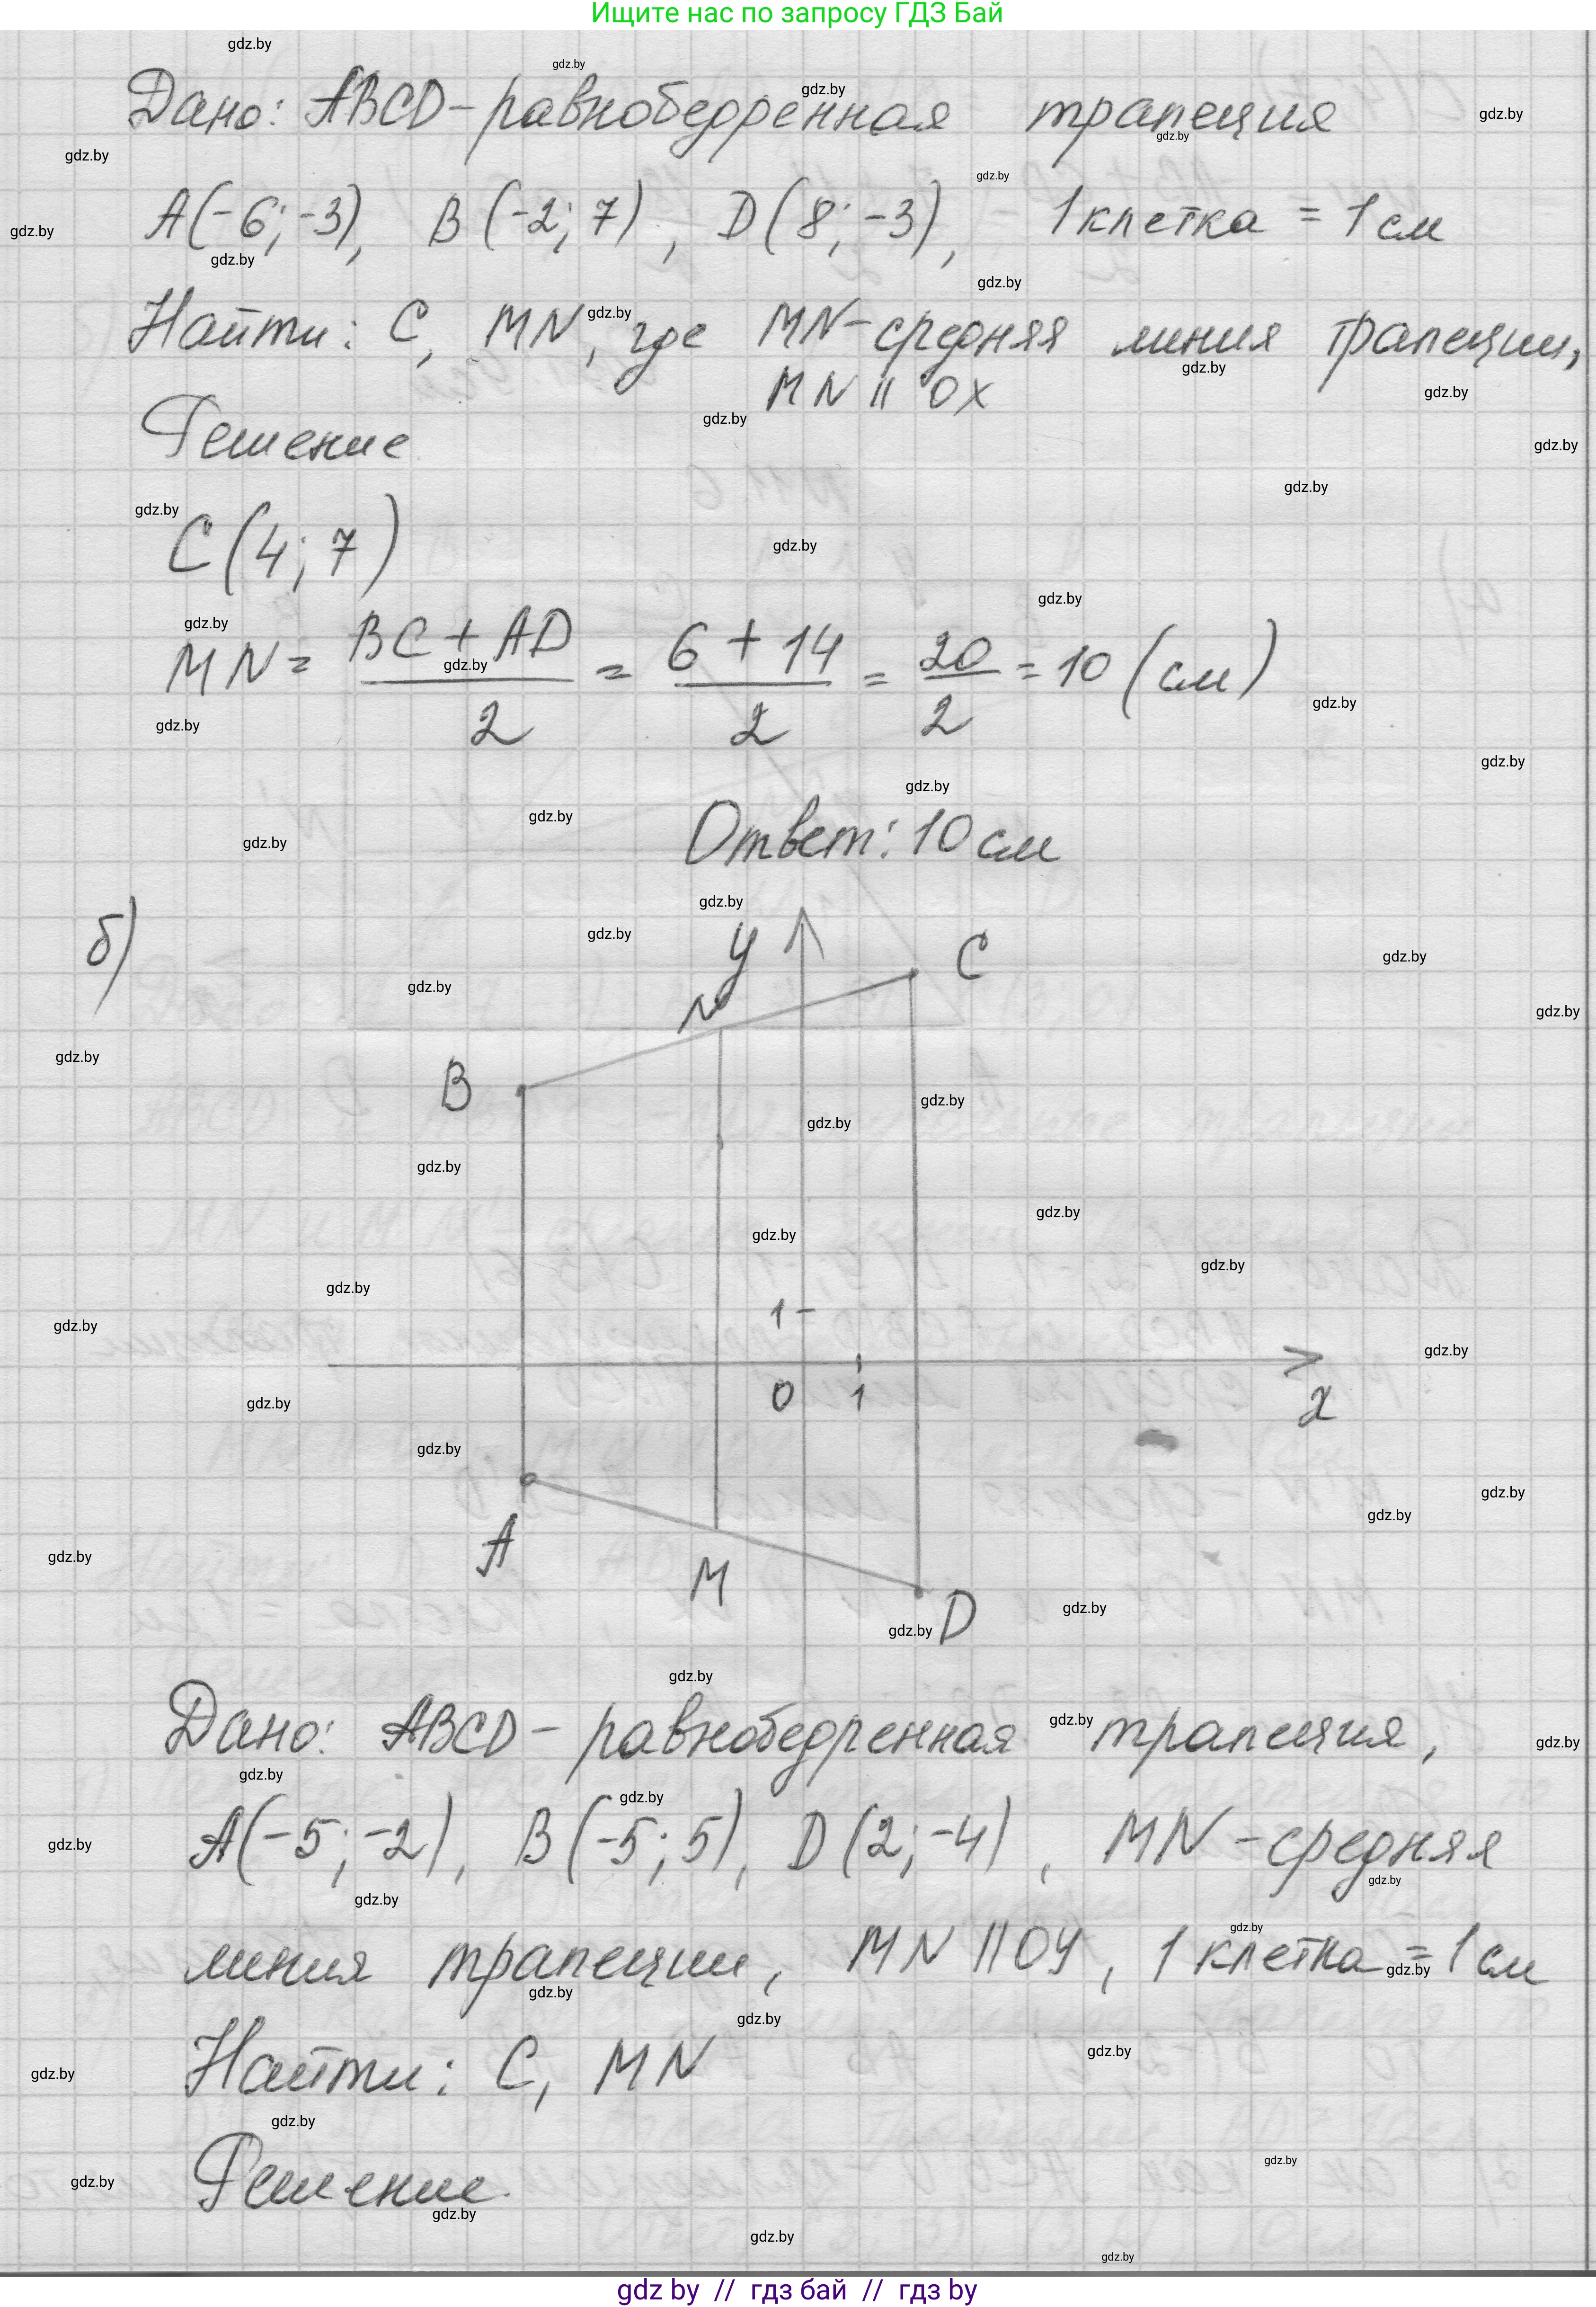 Ищите нас по запросу ГДЗ Бай
Дано: ABCD - равнобедренная трапеция
A(-6; -3), B(-2; 7), D(8; -3), 1 клетка = 1 см
Найти: C, MN, где MN - средняя линия трапеции,
MN || OX
Решение
C(4; 7)
MN = BC + AD / 2 = 6 + 14 / 2 = 20 / 2 = 10 (см)
Ответ: 10 см
б)
y
C
N
B
1
0 1
x
A
M
D
Дано: ABCD - равнобедренная трапеция,
A(-5; -2), B(-5; 5), D(2; -4), MN - средняя
линия трапеции, MN || OY, 1 клетка = 1 см
Найти: C, MN
Решение.
gdz by // гдз бай // гдз by